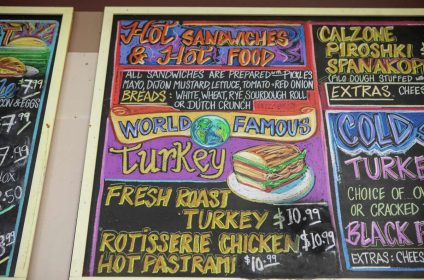 7.99
CON & EGGS
7.99
Hot SANDWICHES
& Hot FOOD
ALL SANDWICHES ARE PREPARED with PICKLES
MAYO, DIJON MUSTARD, LETTUCE, TOMATO + RED ONION
BREADS: WHITE, WHEAT, RYE, SOURDOUGH ROLL
OR DUTCH CRUNCH
WORLD FAMOUS
Turkey
FRESH ROAST
TURKEY $10.99
ROTISSERIE CHICKEN $10.99
HOT PASTRAMI $10.99
CALZONE
PIROSHKI
SPANAKOP
(FILO DOUGH STUFFED
EXTRAS: CHEES
COLD S
TURKE
CHOICE OF OV
OR CRACKED
BLACK F
EXTRAS: CHEES